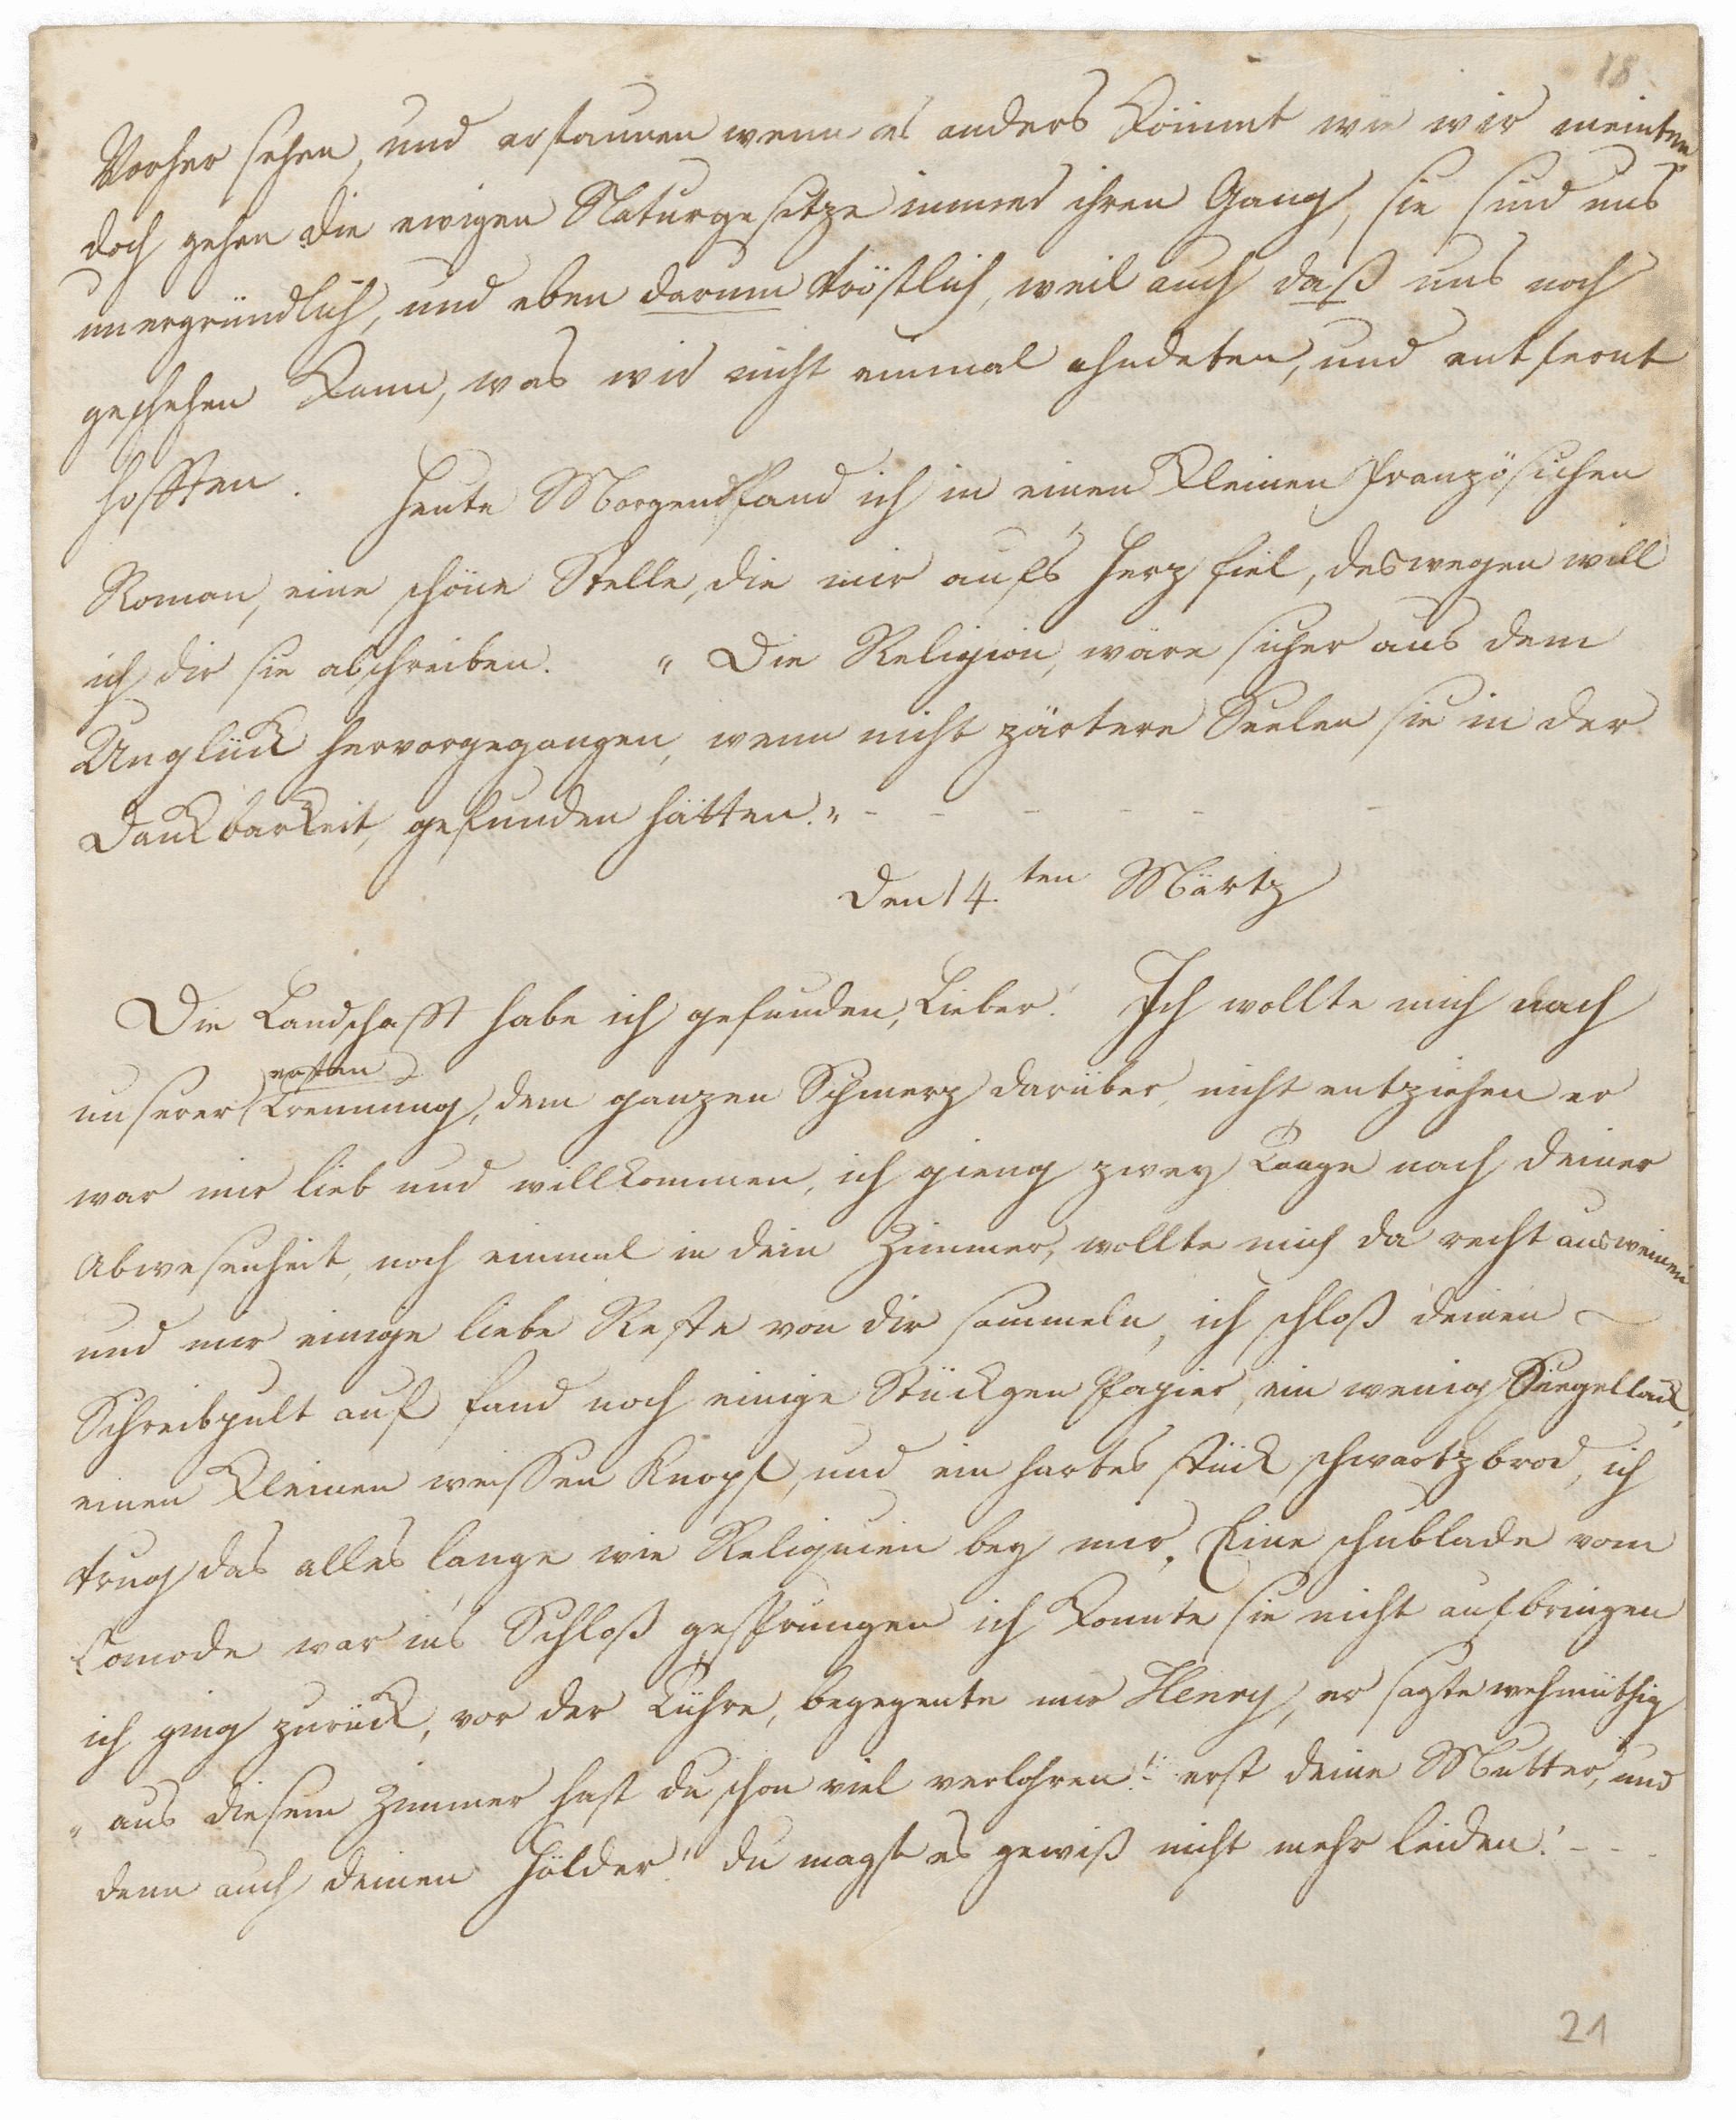 18
Vorher sehen, und erstaunen wenn es anders kömmt wie wir meinten
doch gehen die ewigen Naturgesetze immer ihren Gang, sie sind uns
unergründlich, und eben darum tröstlich, weil auch daß uns noch
geschehen kann, was wir nicht einmal ahndeten, und entfernt
hofften. Heute Morgend fand ich in einen kleinen französichen
Roman, eine schöne Stelle, die mir aufs Herz fiel, deswegen will
ich dir sie abschreiben. „Die Religion, wäre sicher aus dem
Unglück hervorgegangen, wenn nicht zärtere Seelen sie in der
Dankbarkeit, gefunden hätten.„ - - - - - -
Den 14.ten Märtz
Die Landschafft habe ich gefunden, Lieber! Ich wollte mich nach
unserer ersten Trennung, dem ganzen Schmerz darüber, nicht entziehen er
war mir lieb und willkommen, ich gieng zwey Taage nach deiner
Abwesenheit, noch einmal in dein Zimmer, wollte mich da recht ausweinen
und mir einige liebe Reste von dir sammeln, ich schloß deinen
Schreibpult auf fand noch einige Stückgen Papier, ein wenig Siegellack,
einen kleinen weissen Knopf, und ein hartes stück schwartzbrod, ich
trug das alles lange wie Reliquien bey mir. Eine schublade vom
Comode war ins Schloß gesprungen ich konnte sie nicht aufbringen
ich ging zurück, vor der Tühre, begegente mir Henry, er sagte wehmüthig
„aus diesem Zimmer hast du schon viel verlohren! erst deine Mutter, und
denn auch deinen Hölder! du magst es gewiß nicht mehr leiden! - - -
21